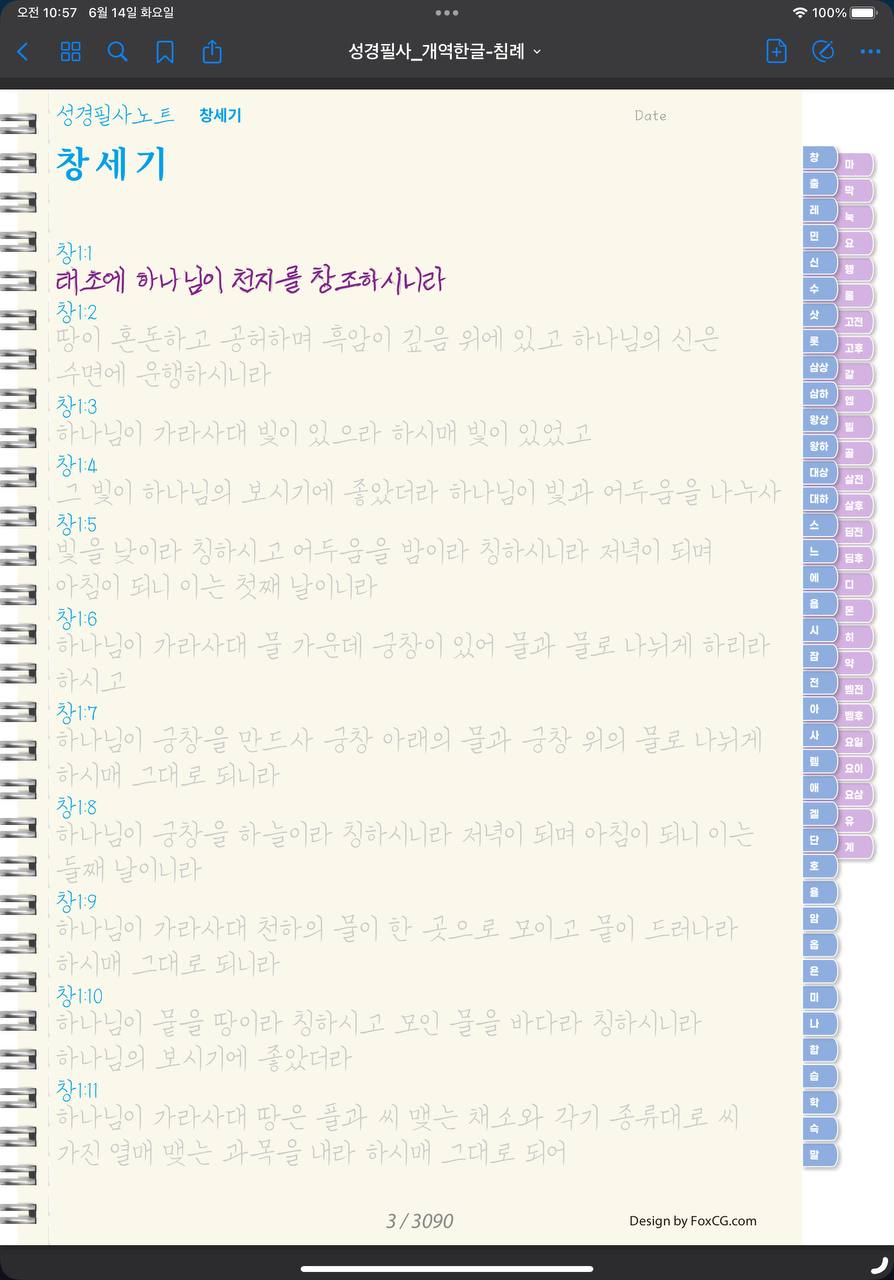 오전 10:57 6월 14일 화요일
100%
성경필사_개역한글-침례
성경필사노트 창세기 Date
창세기
창1:1
태초에 하나님이 천지를 창조하시니라
창1:2
땅이 혼돈하고 공허하며 흑암이 깊음 위에 있고 하나님의 신은
수면에 운행하시니라
창1:3
하나님이 가라사대 빛이 있으라 하시매 빛이 있었고
창1:4
그 빛이 하나님의 보시기에 좋았더라 하나님이 빛과 어두움을 나누사
창1:5
빛을 낮이라 칭하시고 어두움을 밤이라 칭하시니라 저녁이 되며
아침이 되니 이는 첫째 날이니라
창1:6
하나님이 가라사대 물 가운데 궁창이 있어 물과 물로 나뉘게 하리라
하시고
창1:7
하나님이 궁창을 만드사 궁창 아래의 물과 궁창 위의 물로 나뉘게
하시매 그대로 되니라
창1:8
하나님이 궁창을 하늘이라 칭하시니라 저녁이 되며 아침이 되니 이는
둘째 날이니라
창1:9
하나님이 가라사대 천하의 물이 한 곳으로 모이고 뭍이 드러나라
하시매 그대로 되니라
창1:10
하나님이 뭍을 땅이라 칭하시고 모인 물을 바다라 칭하시니라
하나님의 보시기에 좋았더라
창1:11
하나님이 가라사대 땅은 풀과 씨 맺는 채소와 각기 종류대로 씨
가진 열매 맺는 과목을 내라 하시매 그대로 되어
3 / 3090
Design by FoxCG.com
창
출
레
민
신
수
삿
룻
삼상
삼하
왕상
왕하
대상
대하
스
느
에
욥
시
잠
전
아
사
렘
애
겔
단
호
욜
암
옵
욘
미
나
합
습
학
슥
말
마
막
눅
요
행
롬
고전
고후
갈
엡
빌
골
살전
살후
딤전
딤후
디
몬
히
약
벧전
벧후
요일
요이
요삼
유
계